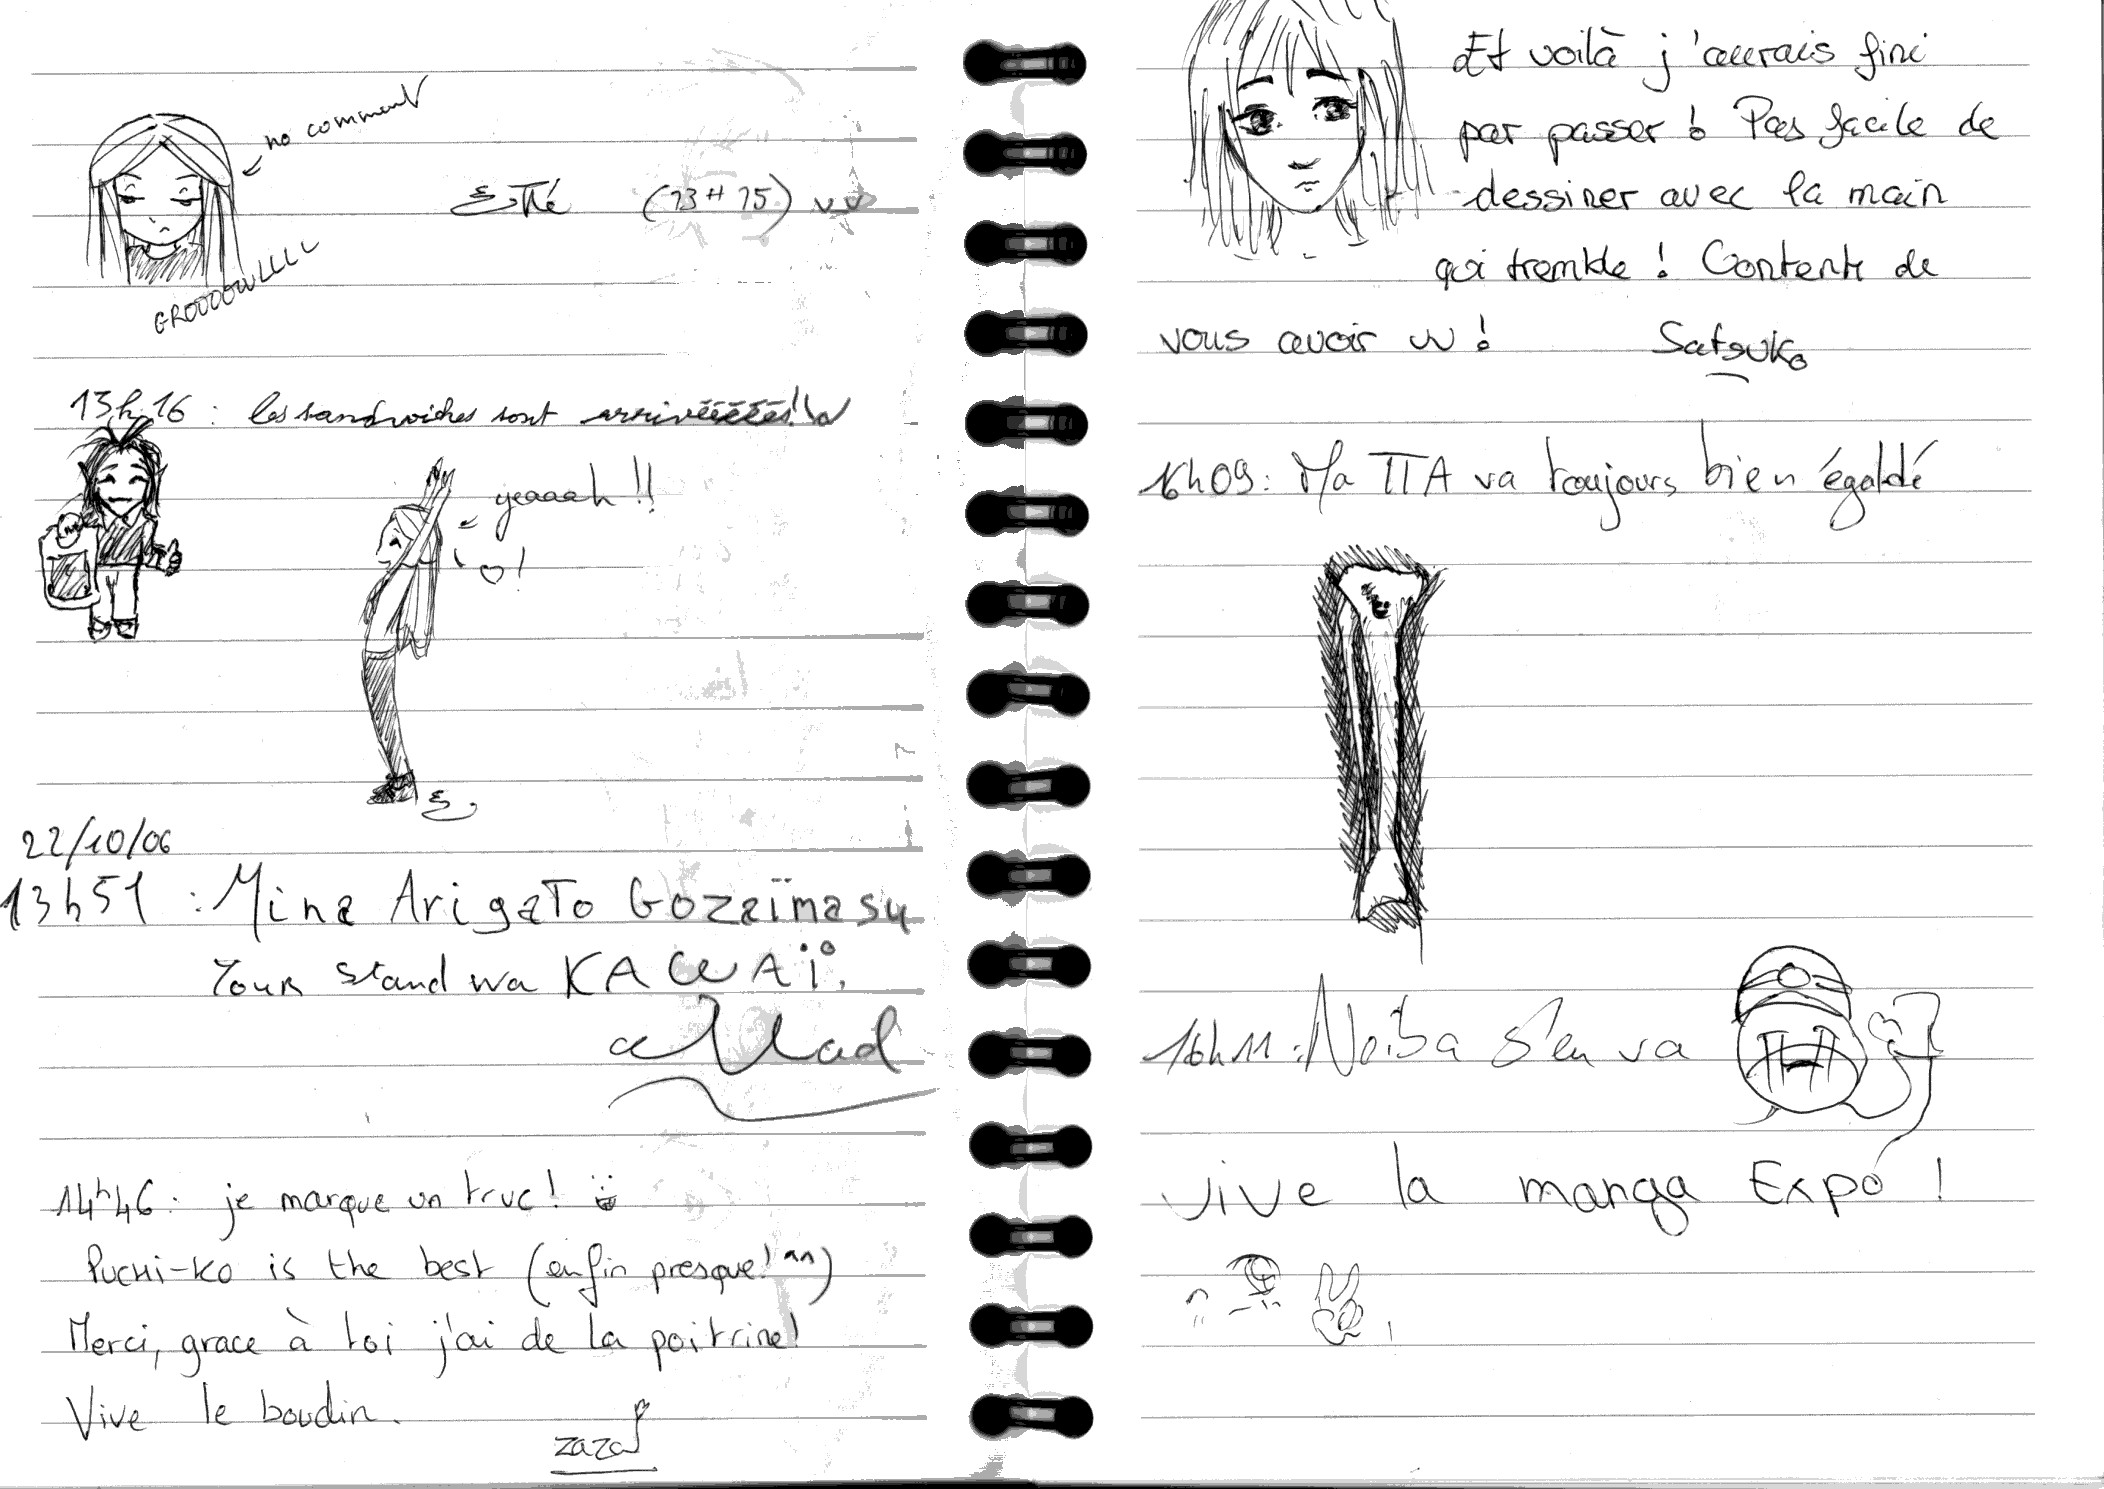 no comment
(13H15) vv
GROOOOWLLLL
13h16 : les sandwiches sont arrivéééééés!!
yeaaah !!
22/10/06
13h51 : Mina Arigato Gozaïmasu
Your stand wa KAWAi.
14h46 : je marque un truc !
Puchi-ko is the best (enfin presque! ^^)
Merci, grace à toi j'ai de la poitrine!
Vive le boudin.
zaza
Et voilà j'aurais fini
par passer ! Pas facile de
dessiner avec la main
qui tremble ! Contente de
vous avoir vu !   Satsuko
16h09 : Ma va toujours bien
16h11 : s'en va
vive la manga Expo !